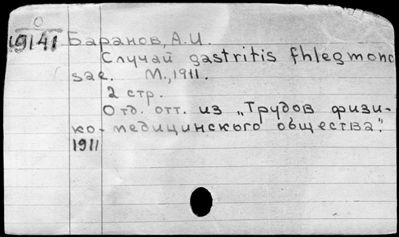 0
19141 Баранов, А.И.
Случай gastritis fhlegmono
sae. М., 1911.
2 стр.
Отд. отт. из „Трудов физи-
ко-медицинского общества".
1911